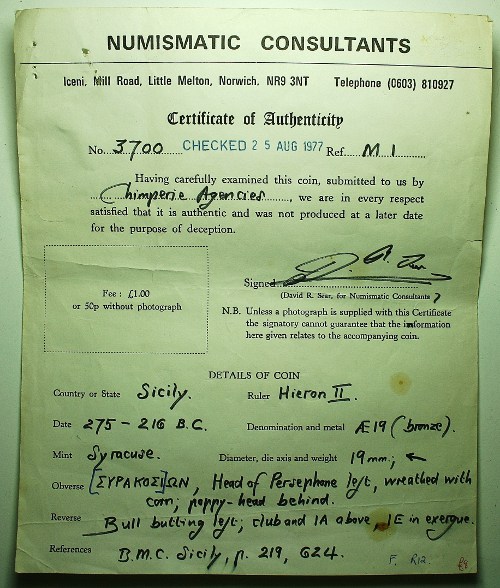 NUMISMATIC CONSULTANTS
Iceni, Mill Road, Little Melton, Norwich. NR9 3NT Telephone (0603) 810927
Certificate of Authenticity
No. 3700 CHECKED 25 AUG 1977 Ref. M 1
Having carefully examined this coin, submitted to us by
Chimperie Agencies, we are in every respect
satisfied that it is authentic and was not produced at a later date
for the purpose of deception.
Signed
(David R. Sear, for Numismatic Consultants)
Fee : £1.00
or 50p without photograph
N.B. Unless a photograph is supplied with this Certificate
the signatory cannot guarantee that the information
here given relates to the accompanying coin.
DETAILS OF COIN
Country or State Sicily. Ruler Hieron II.
Date 275 - 216 B.C. Denomination and metal Æ19 (bronze).
Mint Syracuse. Diameter, die axis and weight 19mm; ↖
Obverse [ΣΥΡΑΚΟΣΙ]ΩΝ, Head of Persephone left, wreathed with
corn; poppy-head behind.
Reverse Bull butting left; club and IA above, IE in exergue.
References B.M.C. Sicily, p. 219, 624.
F. R12.